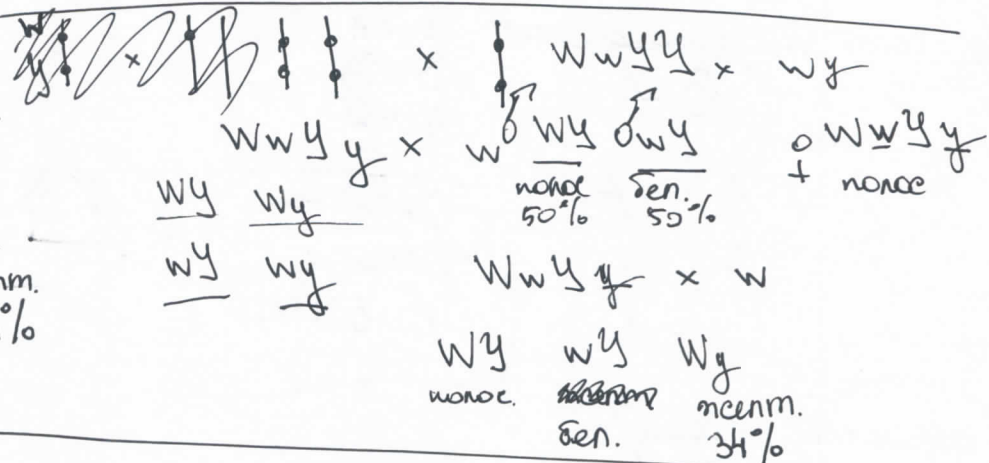 w
y × × WwYY × wy
WwYy × w ♂ WY ♂ wY ♀ WwYy
WY Wy полос 50% бел. 50% полос
wY wy WwYy × w
пт.
%
WY wY Wy
полос. бел. желт.
34%